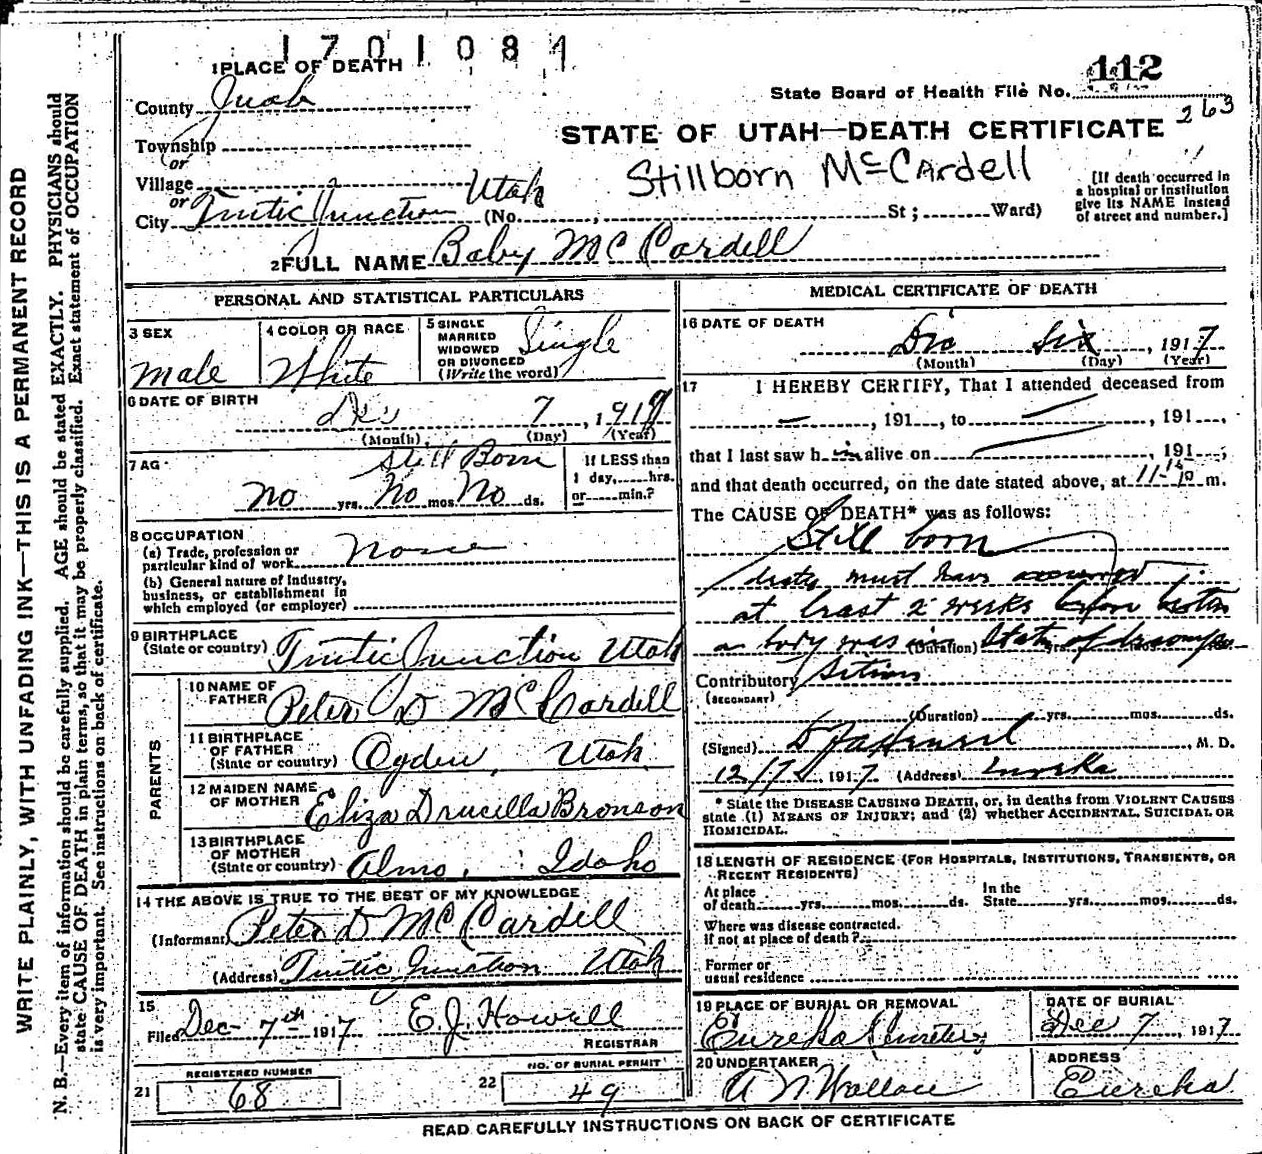 1701084
1 PLACE OF DEATH
112
County Juab
State Board of Health File No.
263
Township
STATE OF UTAH—DEATH CERTIFICATE
or
Village
Stillborn McCardell
or
City Tintic Junction Utah (No. , St; Ward)
[If death occurred in
a hospital or institution
give its NAME instead
of street and number.]
2 FULL NAME Baby McCardell
PERSONAL AND STATISTICAL PARTICULARS
3 SEX
Male
4 COLOR OR RACE
White
5 SINGLE
MARRIED
WIDOWED
OR DIVORCED
(Write the word)
Single
6 DATE OF BIRTH
Dec 7, 1917
(Month) (Day) (Year)
7 AG
Still Born
No yrs. No mos. No ds.
If LESS than
1 day, hrs.
or min.?
8 OCCUPATION
(a) Trade, profession or
particular kind of work None
(b) General nature of industry,
business, or establishment in
which employed (or employer)
9 BIRTHPLACE
(State or country) Tintic Junction Utah
PARENTS
10 NAME OF
FATHER Peter D McCardell
11 BIRTHPLACE
OF FATHER
(State or country) Ogden, Utah
12 MAIDEN NAME
OF MOTHER Eliza Drucilla Bronson
13 BIRTHPLACE
OF MOTHER
(State or country) Almo, Idaho
14 THE ABOVE IS TRUE TO THE BEST OF MY KNOWLEDGE
(Informant) Peter D McCardell
(Address) Tintic Junction Utah
15
Filed Dec 7th 1917 E J. Howell
REGISTRAR
21
REGISTERED NUMBER
68
22
NO. OF BURIAL PERMIT
49
MEDICAL CERTIFICATE OF DEATH
16 DATE OF DEATH
Dec Six, 1917
(Month) (Day) (Year)
17 I HEREBY CERTIFY, That I attended deceased from
, 191 , to , 191 ,
that I last saw him alive on , 191 ;
and that death occurred, on the date stated above, at m.
The CAUSE OF DEATH* was as follows:
Still born
death must have occurred
at least 2 weeks before birth
as body was in (Duration) State of decompo-
Contributory sition
(SECONDARY)
(Duration) yrs. mos. ds.
(Signed) , M. D.
12/7, 1917. (Address) Eureka
* State the DISEASE CAUSING DEATH, or, in deaths from VIOLENT CAUSES
state (1) MEANS OF INJURY; and (2) whether ACCIDENTAL, SUICIDAL OR
HOMICIDAL.
18 LENGTH OF RESIDENCE (FOR HOSPITALS, INSTITUTIONS, TRANSIENTS, OR
RECENT RESIDENTS)
At place
of death yrs. mos. ds.
In the
State yrs. mos. ds.
Where was disease contracted.
If not at place of death?
Former or
usual residence
19 PLACE OF BURIAL OR REMOVAL
Eureka
DATE OF BURIAL
Dec 7, 1917
20 UNDERTAKER
A N. Wallace
ADDRESS
Eureka
READ CAREFULLY INSTRUCTIONS ON BACK OF CERTIFICATE
WRITE PLAINLY, WITH UNFADING INK—THIS IS A PERMANENT RECORD
N. B.—Every item of information should be carefully supplied. AGE should be stated EXACTLY. PHYSICIANS should
state CAUSE OF DEATH in plain terms, so that it may be properly classified. Exact statement of OCCUPATION
is very important. See instructions on back of certificate.